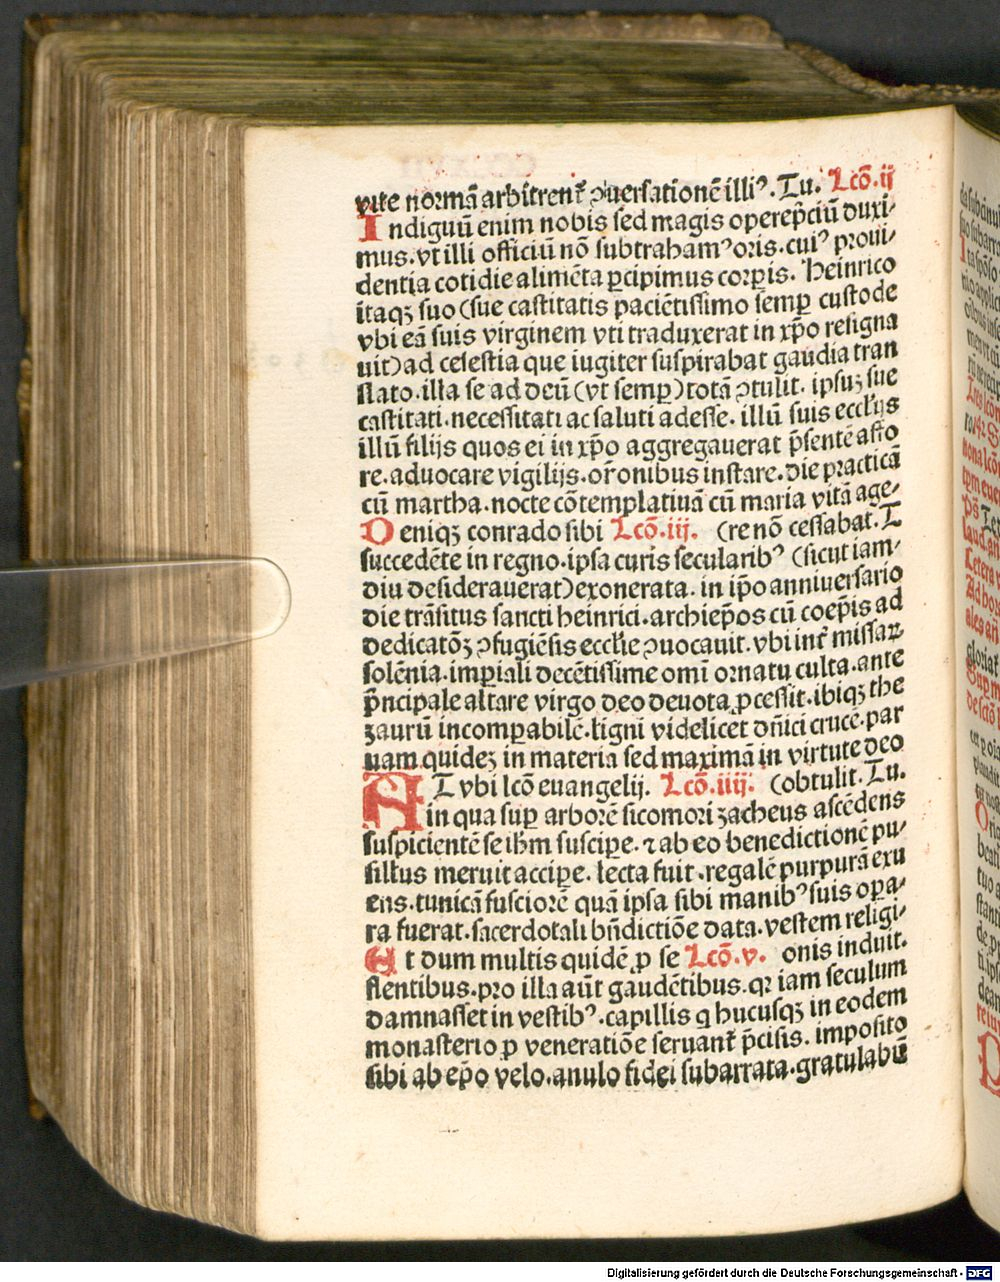 vite normā arbitrent᷑ ꝯuersationē illiꝰ. Tu. Lcō.ij
Indignū enim nobis sed magis operep̄ciū duxi-
mus. vt illi officiū nō subtrahamꝰ oris. cuiꝰ proui-
dentia cotidie alimēta ꝑcipimus corꝑis. Heinrico
itaqꝫ suo (sue castitatis paciētissimo semꝑ custode
vbi eā suis virginem vti traduxerat in xp̄o resigna
uit) ad celestia que iugiter suspirabat gaudia tran
slato. illa se ad deū (vt semꝑ) totā ꝯtulit. ipsuꝫ sue
castitati. necessitati ac saluti adesse. illū suis eccl'ijs
illū filijs quos ei in xp̄o aggregauerat p̄sentē asto
re. aduocare vigilijs. or̄onibus instare. die practicā
cū martha. nocte cōtemplatiuā cū maria vitā age-
Deniqꝫ conrado sibi Lcō.iij. (re nō cessabat. T
succedēte in regno. ipsa curis secularibꝰ (sicut iam-
diu desiderauerat) exonerata. in ip̄o anniuersario
die trāsitus sancti heinrici. archiep̄os cū coep̄is ad
dedicatōꝫ ꝯfugiēsis eccl'ie ꝯuocauit. vbi int᷑ missaꝝ
solēnia. imꝑiali decētissime omī ornatu culta. ante
p̄ncipale altare virgo deo deuota ꝓcessit. ibiqꝫ the
zaurū incomꝑabilē. ligni videlicet dn̄ici crucē. par
uam quideꝫ in materia sed maximā in virtute deo
AT vbi lcō euangelij. Lcō.iiij. (obtulit. Tu.
in qua suꝑ arborē sicomori zacheus ascēdens
suspicientē se ihm̄ suscipe. ⁊ ab eo benedictionē pu-
sillus meruit accipe. lecta fuit. regalē purpurā exu
ens. tunicā fusciorē quā ipsa sibi manibꝰ suis oꝑa-
ra fuerat. sacerdotali bn̄dictiōe data. vestem religi-
Et dum multis quidē ꝓ se Lcō.v. onis induit.
flentibus. pro illa aūt gaudētibus. qꝛ iam seculum
damnasset in vestibꝰ. capillis q hucusqꝫ in eodem
monasterio ꝓ veneratiōe seruant᷑ p̄cisis. imposito
sibi ab ep̄o velo. anulo fidei subarrata. gratulabū
Digitalisierung gefördert durch die Deutsche Forschungsgemeinschaft - DFG